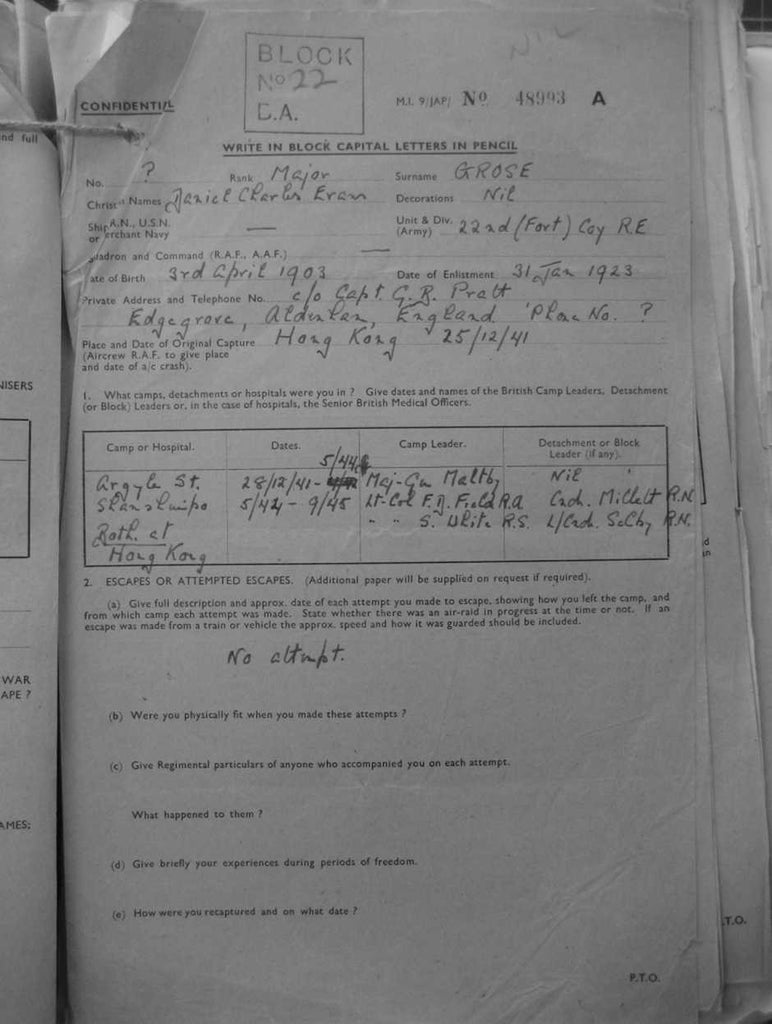 nd full
BLOCK
No 22
C.A.
NIL
CONFIDENTIAL
M.I. 9/JAP/ No 48993 A
WRITE IN BLOCK CAPITAL LETTERS IN PENCIL
No. ? Rank Major Surname GROSE
Christian Names Daniel Charles Evan Decorations Nil
Ship R.N., U.S.N.
or Merchant Navy —
Unit & Div.
(Army) 22nd (Fort) Coy R.E
quadron and Command (R.A.F., A.A.F.) —
ate of Birth 3rd April 1903 Date of Enlistment 31 Jan 1923
Private Address and Telephone No. c/o Capt. G. R. Pratt
Edgegrove, Aldenham, England 'Phone No. ?
Place and Date of Original Capture Hong Kong 25/12/41
(Aircrew R.A.F. to give place
and date of a/c crash).
1. What camps, detachments or hospitals were you in ? Give dates and names of the British Camp Leaders, Detachment
(or Block) Leaders or, in the case of hospitals, the Senior British Medical Officers.
Camp or Hospital. Dates. Camp Leader. Detachment or Block
Leader (if any).
5/44
Argyle St. 28/12/41 - Maj-Gen Maltby Nil
Shamshuipo 5/44 - 9/45 Lt-Col F.D. Field R.A Cmdr. Millett R.N.
" " S. White R.S. L/Cmdr. R.N.
Both at
Hong Kong
2. ESCAPES OR ATTEMPTED ESCAPES. (Additional paper will be supplied on request if required).
(a) Give full description and approx. date of each attempt you made to escape, showing how you left the camp, and
from which camp each attempt was made. State whether there was an air-raid in progress at the time or not. If an
escape was made from a train or vehicle the approx. speed and how it was guarded should be included.
No attempt.
(b) Were you physically fit when you made these attempts ?
(c) Give Regimental particulars of anyone who accompanied you on each attempt.
What happened to them ?
(d) Give briefly your experiences during periods of freedom.
(e) How were you recaptured and on what date ?
P.T.O.
NISERS
WAR
APE ?
AMES:
T.O.